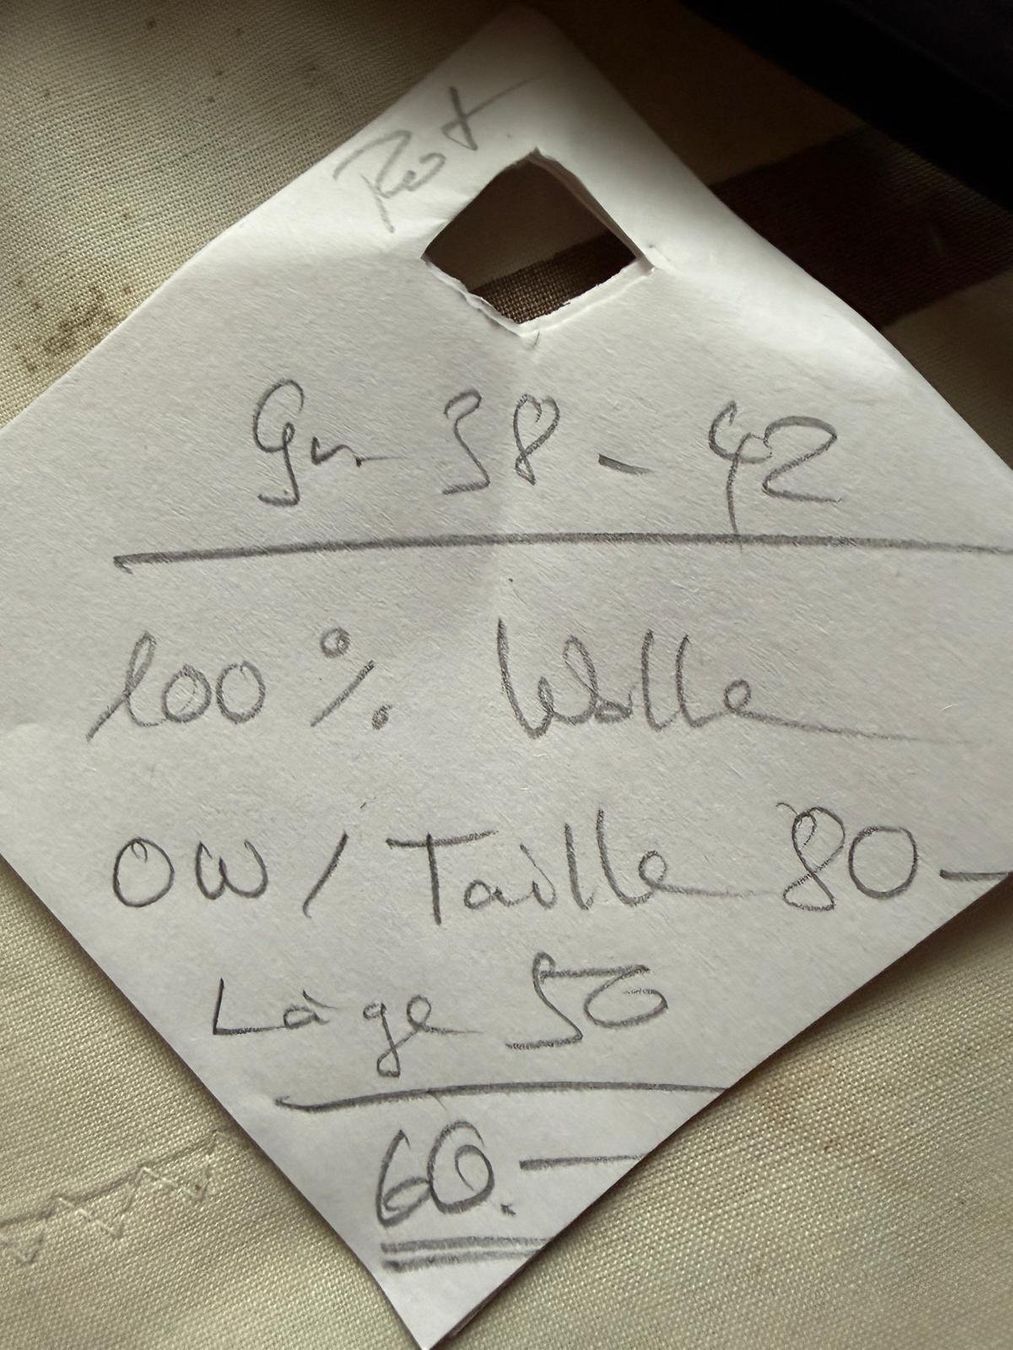 Rot
Gr. 38 - 42
100 % Wolle
OW / Taille 80-
Läge 50
60.-